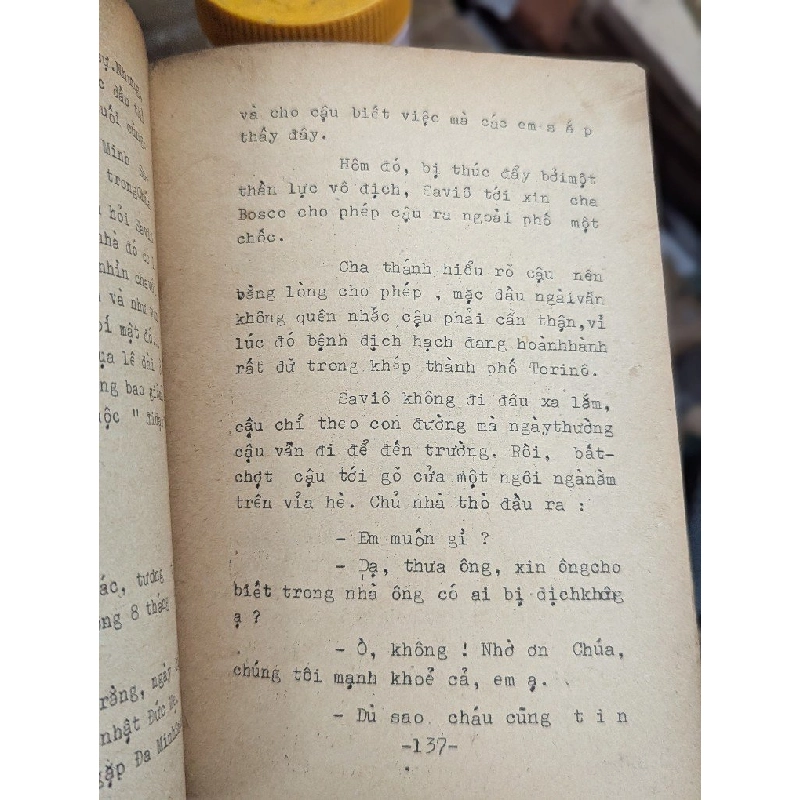 và cho cậu biết việc mà các em s ắ p
thấy đây.
Hôm đó, bị thúc đẩy bởimột
thần lực vô địch, Saviô tới xin cha
Bosco cho phép cậu ra ngoài phố một
chốc.
Cha thánh hiểu rõ cậu nên
bằng lòng cho phép , mặc dầu ngàivẫn
không quên nhắc cậu phải cẩn thận,vì
lúc đó bệnh dịch hạch đang hoànhhành
rất dữ trong khắp thành phố Torinô.
Saviô không đi đâu xa lắm,
cậu chỉ theo con đường mà ngàythường
cậu vẫn đi để đến trường. Rồi, bất-
chợt cậu tới gõ cửa một ngôi ngànằm
trên vỉa hè. Chủ nhà thò đầu ra :
- Em muốn gì ?
- Dạ, thưa ông, xin ôngcho
biết trong nhà ông có ai bị dịchkhông
ạ ?
- Ồ, không ! Nhờ ơn Chúa,
chúng tôi mạnh khoẻ cả, em ạ.
- Dù sao cháu cũng t i n
-137-
Minh
hỏi
nhà đó
và như
bí mật đó.
ng bao
ộc "
ác, tương
ong 8 tháng
rằng, ngày
nhật Đức
gặp Đa Minh